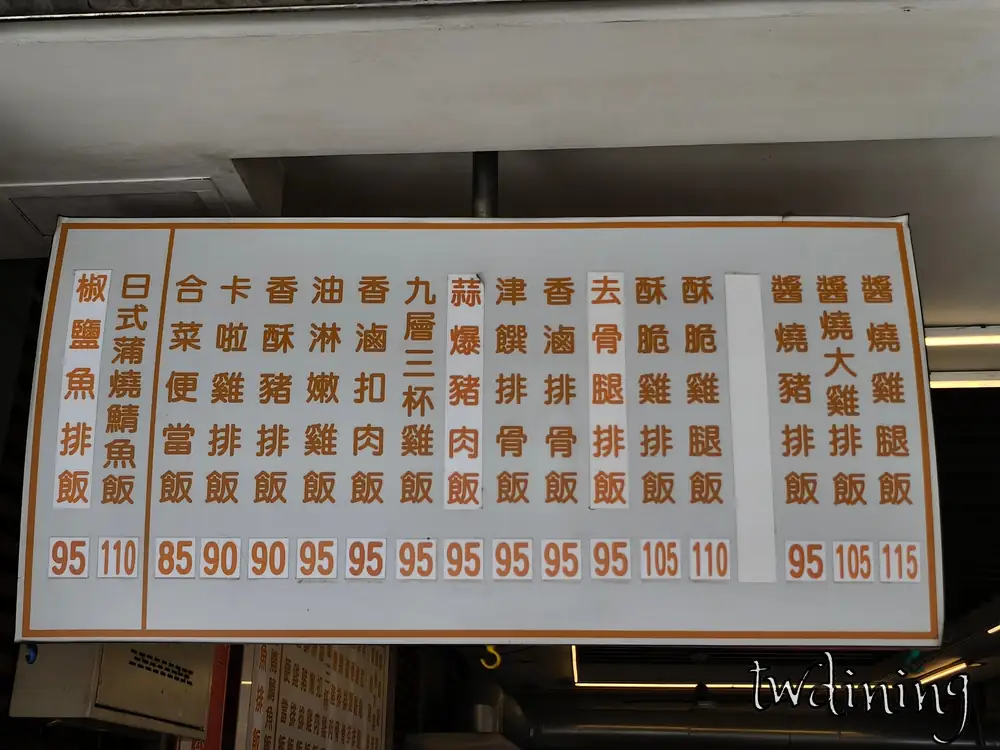 醬燒雞腿飯
115
醬燒大雞排飯
105
醬燒豬排飯
95
酥脆雞腿飯
110
酥脆雞排飯
105
去骨腿排飯
95
香滷排骨飯
95
津饌排骨飯
95
蒜爆豬肉飯
95
九層三杯雞飯
95
香滷扣肉飯
95
油淋嫩雞飯
95
香酥豬排飯
90
卡啦雞排飯
90
合菜便當飯
85
日式蒲燒鯖魚飯
110
椒鹽魚排飯
95
twdining